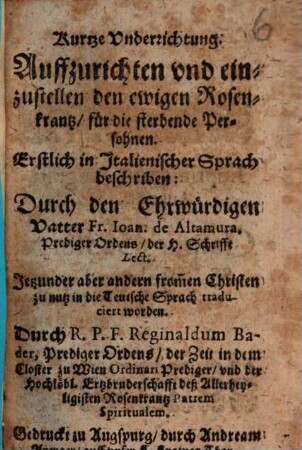 6
Kurtze Vnderrichtung.
Auffzurichten vnd ein-
zustellen den ewigen Rosen-
krantz/ für die sterbende Per-
sohnen.
Erstlich in Italienischer Sprach
beschriben:
Durch den Ehrwürdigen
Vatter Fr. Ioan: de Altamura,
Prediger Ordens/ der H. Schrifft
Lect.
Jetzunder aber andern from̃en Christen
zu nutz in die Teutsche Sprach tradu-
ciert worden.
Durch R. P. F. Reginaldum Ba-
der, Prediger Ordens/ der Zeit in dem
Closter zu Wien Ordinari Prediger/ vnd der
Hochlöbl. Ertzbruderschafft deß Allerhey-
ligisten Rosenkrantz Patrem
Spiritualem.
Gedruckt zu Augspurg/ durch Andream